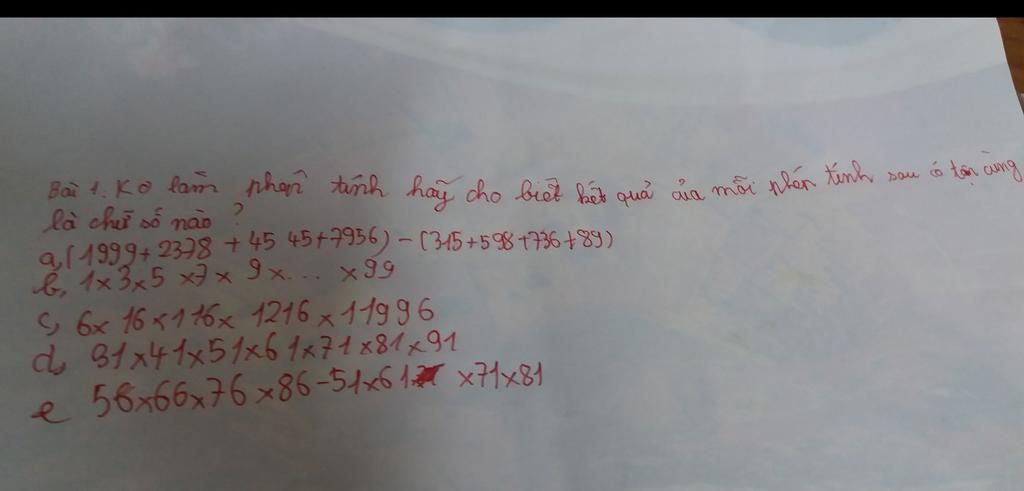 Bài 1: Ko làm phép tính hãy cho biết kết quả của mỗi phép tính sau có tận cùng
là chữ số nào?
a, (1999 + 2378 + 45 45 + 7956) - (315 + 598 + 736 + 89)
b, 1 x 3 x 5 x 7 x 9 x ... x 99
c, 6 x 16 x 116 x 1216 x 11996
d, 31 x 41 x 51 x 61 x 71 x 81 x 91
e 56 x 66 x 76 x 86 - 51 x 61 x 71 x 81